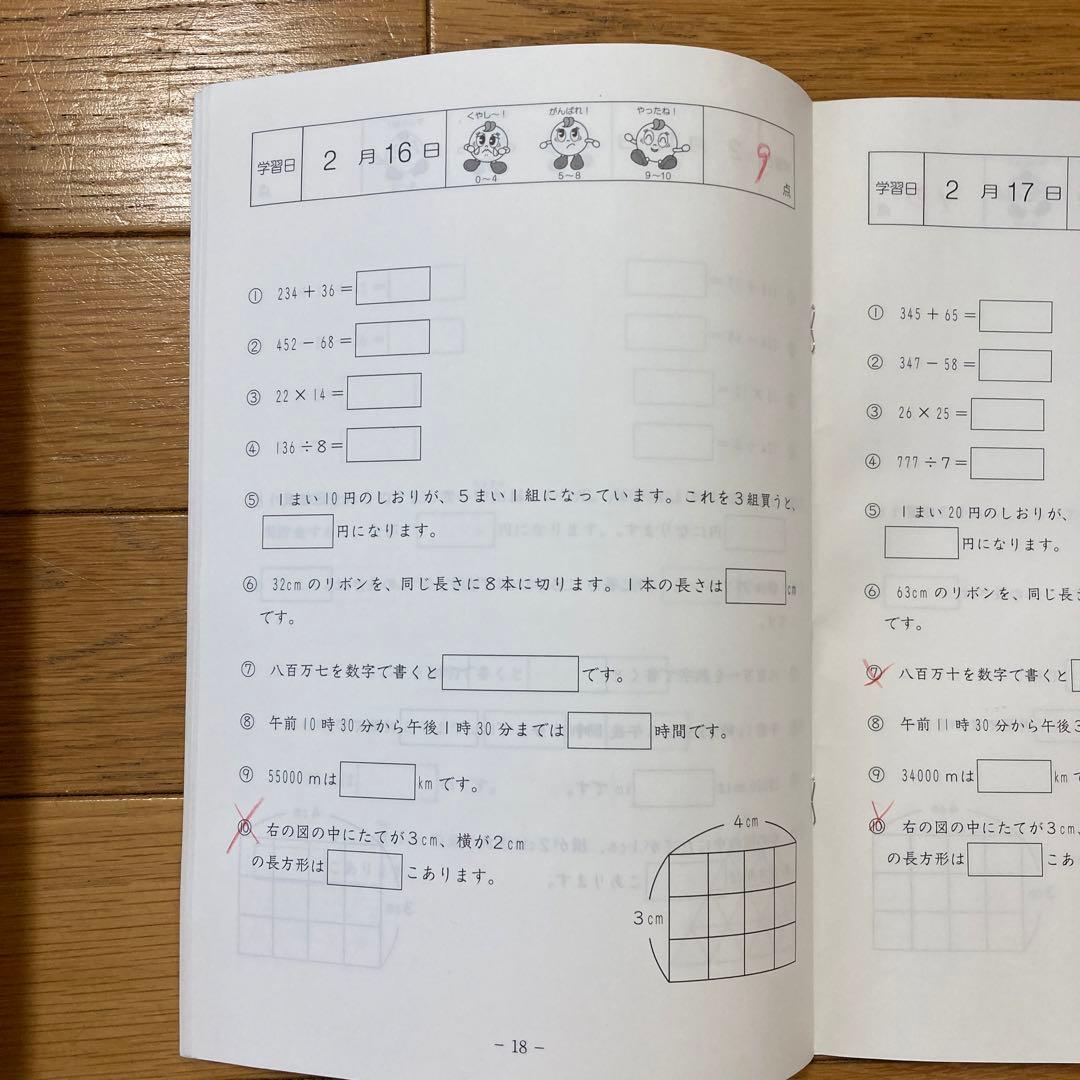 学習日 2月16日 くやし〜！ 0〜4 がんばれ！ 5〜8 やったね！ 9〜10 9点
① 234＋36＝
② 452－68＝
③ 22×14＝
④ 136÷8＝
⑤ 1まい10円のしおりが、5まい1組になっています。これを3組買うと、
円になります。
⑥ 32cmのリボンを、同じ長さに8本に切ります。1本の長さは cm
です。
⑦ 八百万七を数字で書くと です。
⑧ 午前10時30分から午後1時30分までは 時間です。
⑨ 55000mは kmです。
⑩ 右の図の中にたてが3cm、横が2cm
の長方形は こあります。
4cm
3cm
－18－
学習日 2月17日
① 345＋65＝
② 347－58＝
③ 26×25＝
④ 777÷7＝
⑤ 1まい20円のしおりが、
円になります。
⑥ 63cmのリボンを、同じ長さ
です。
⑦ 八百万十を数字で書くと
⑧ 午前11時30分から午後3
⑨ 34000mは km
⑩ 右の図の中にたてが3cm、
の長方形は こあ